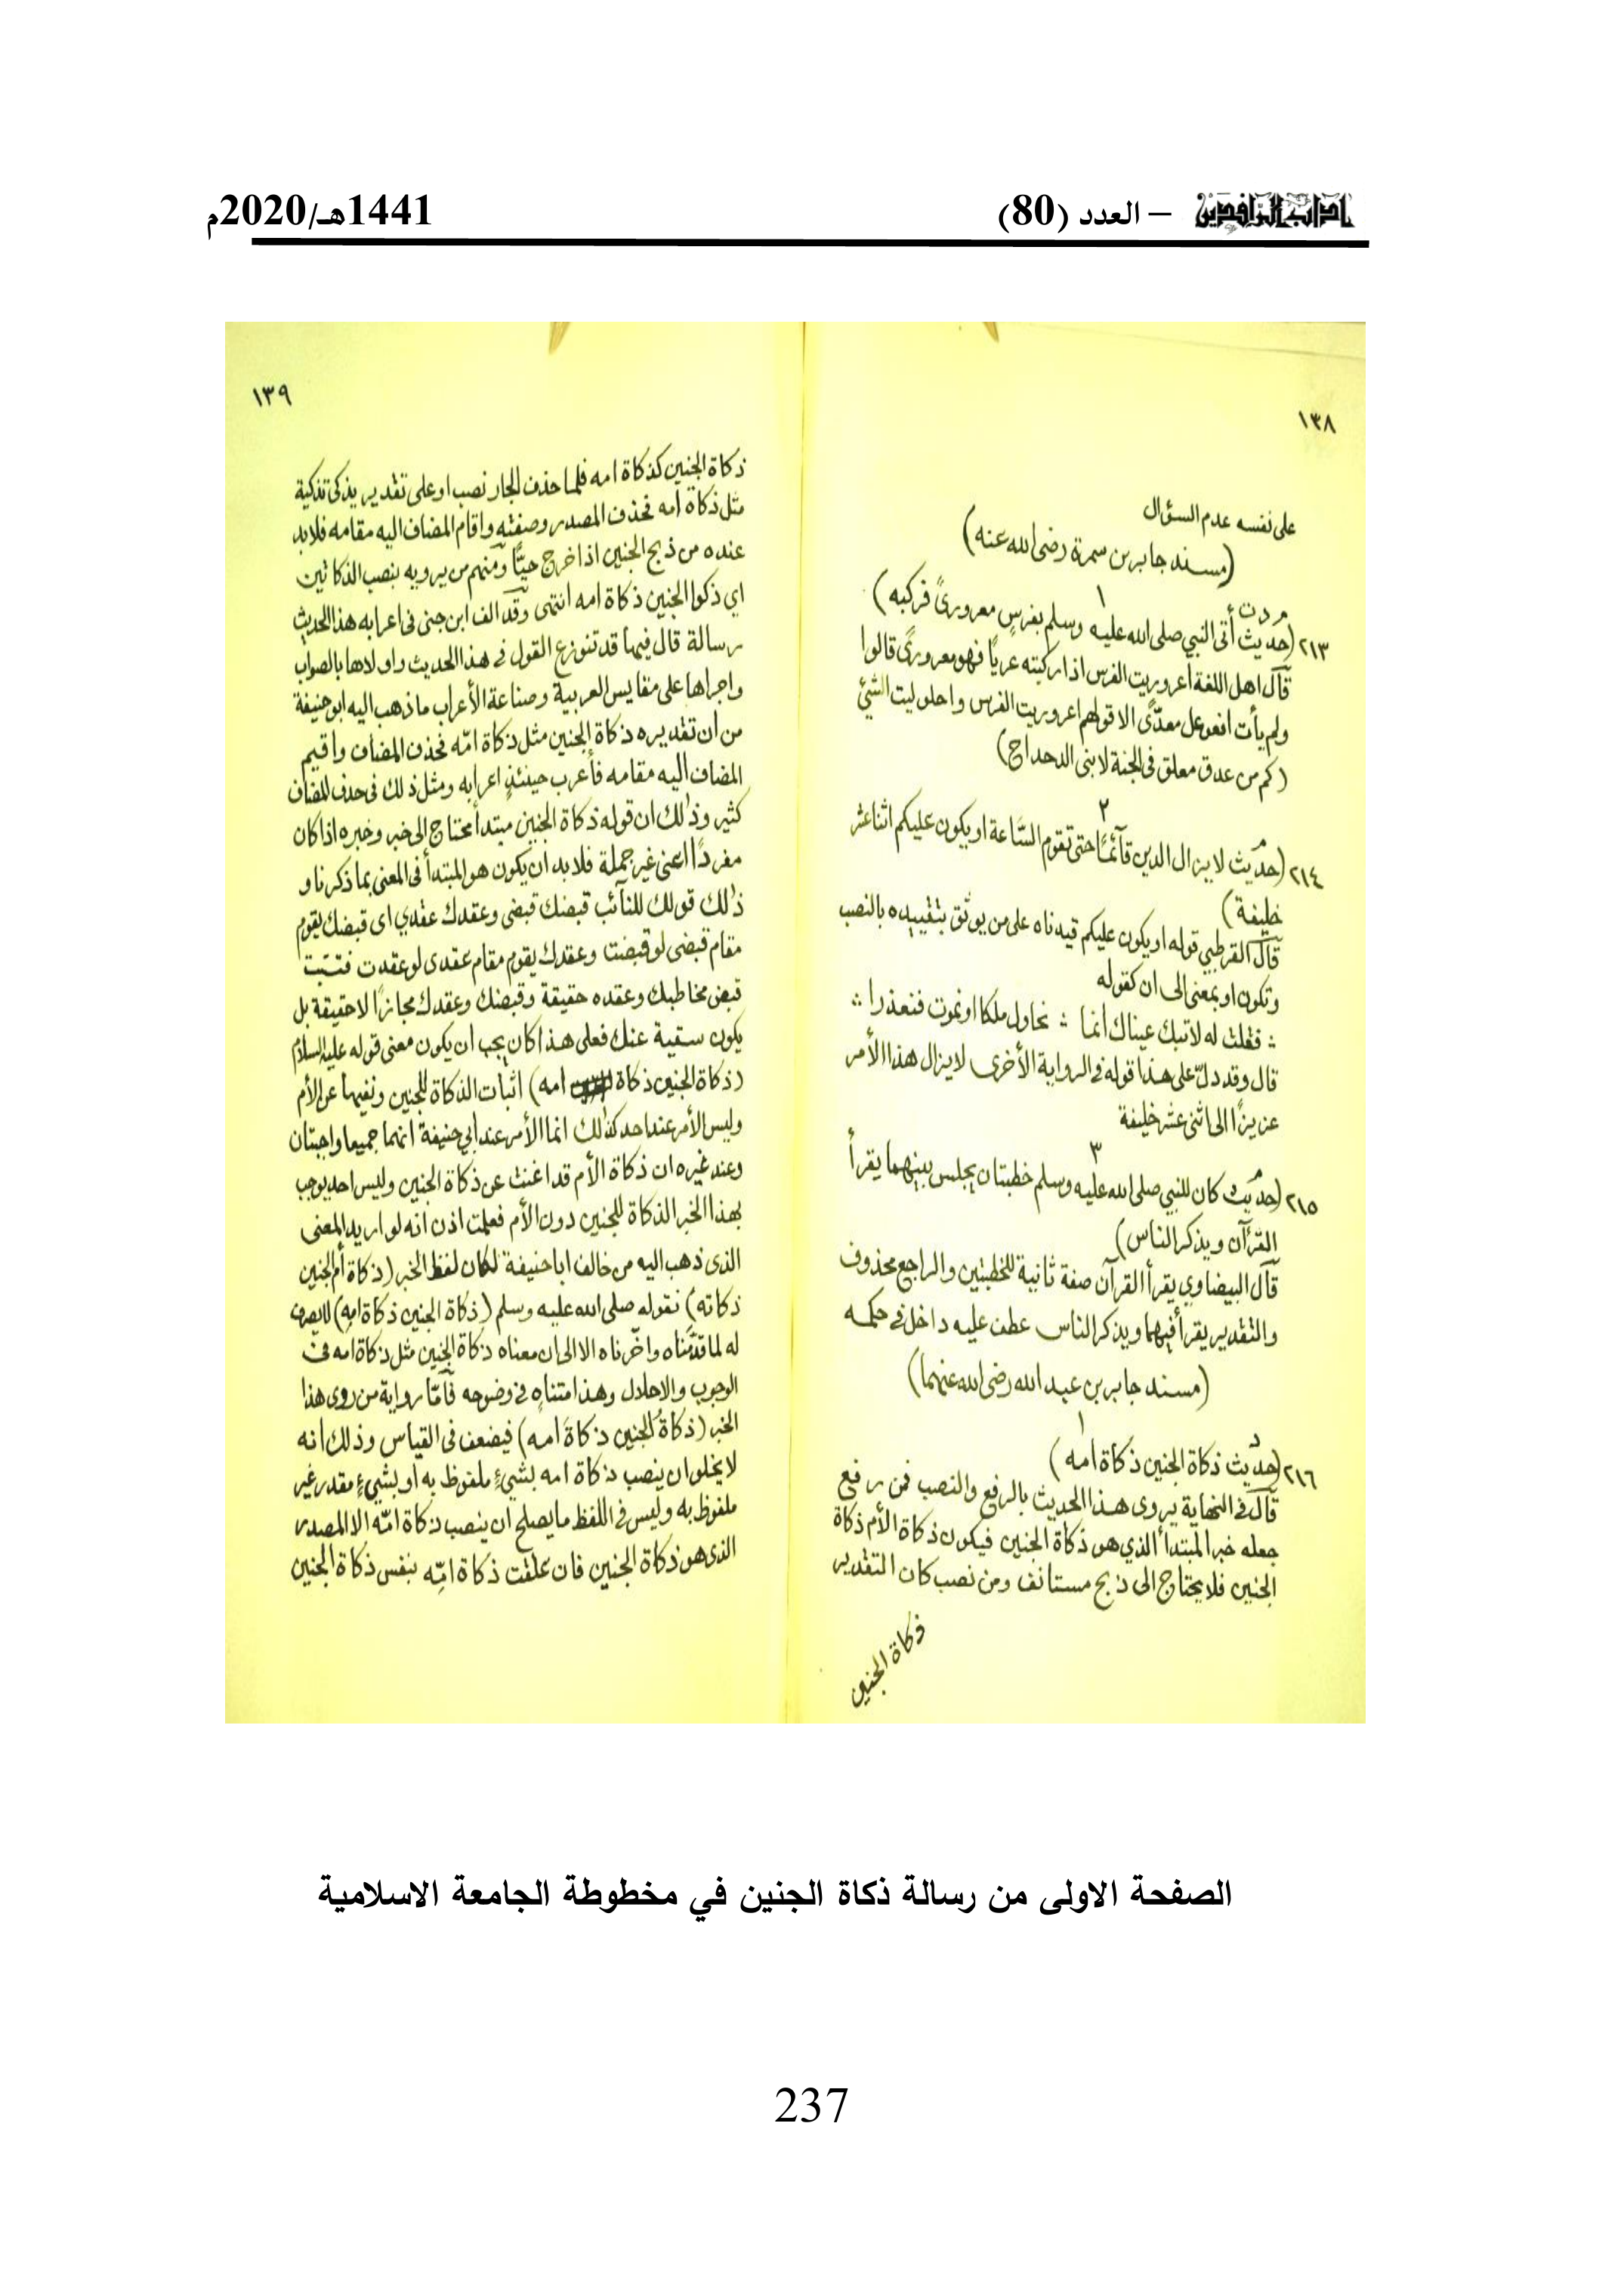 اداب الرافدين – العدد (80)
1441هـ/2020م
١٣٨
على نفسه عدم السؤال
(مسند جابر بن سمرة رضى الله عنه)
١
م د ت
٢١٣ (حديث أتى النبي صلى الله عليه وسلم بفرس معرورىً فركبه)
قال اهل اللغة اعروريت الفرس اذا ركبته عرياً فهو معرورىً قالوا
ولم يأت افعوعل معدًى الا قولهم اعروريت الفرس واحلوليت الشئ
(كم من عدق معلق فى الجنة لابنى الدحداح)
٢
م
٢١٤ (حديث لا يزال الدين قائمًا حتى تقوم السَّاعة او يكون عليكم اثنا عشر
خليفة)
قال القرطبي قوله او يكون عليكم قيدناه على من يوثق بتقييده بالنصب
وتكون او بمعنى الى ان كقوله
؞ فقلت له لا تبك عيناك انما ؞ نحاول ملكا او نموت فنعذرا ؞
قال وقد دلّ على هذا قوله فى الرواية الأخرى لا يزال هذا الأمر
عزيزًا الى اثنى عشر خليفة
٣
م
٢١٥ (حديث كان للنبي صلى الله عليه وسلم خطبتان يجلس بينهما يقرأ
القرآن ويذكر الناس)
قال البيضاوي يقرأ القرآن صفة ثانية للخطبتين والراجع محذوف
والتقدير يقرأ فيهما ويذكر الناس عطف عليه داخل في حكمه
(مسند جابر بن عبد الله رضى الله عنهما)
١
د
٢١٦ (حديث ذكاة الجنين ذكاة امه)
قال فى النهاية يروى هذا الحديث بالرفع والنصب فمن رفع
جعله خبر المبتدأ الذي هو ذكاة الجنين فيكون ذكاة الأم ذكاة
الجنين فلا يحتاج الى ذبح مستانف ومن نصب كان التقدير
ذكاة الجنين
١٣٩
ذكاة الجنين كذكاة امه فلما حذف الجار نصب او على تقدير يذكى تذكية
مثل ذكاة امه فحذف المصدر وصفته واقام المضاف اليه مقامه فلا بد
عنده من ذبح الجنين اذا خرج حيًّا ومنهم من يرويه بنصب الذكاتين
اي ذكوا الجنين ذكاة امه انتهى وقد الف ابن جنى فى اعرابه هذا الحديث
رسالة قال فيها قد تنوزع القول فى هذا الحديث واولاها بالصواب
واجراها على مقايس العربية وصناعة الأعراب ما ذهب اليه ابو حنيفة
من ان تقديره ذكاة الجنين مثل ذكاة امّه فحذف المضاف واقيم
المضاف اليه مقامه فأعرب حينئذٍ اعرابه ومثل ذلك فى حذف المضاف
كثير وذلك ان قوله ذكاة الجنين مبتدأ محتاج الى خبر وخبره اذا كان
مفردًا اعنى غير جملة فلا بد ان يكون هو المبتدأ فى المعنى بما ذكرنا و
ذلك قولك للنائب قبضك قبضى وعقدك عقدي اى قبضك يقوم
مقام قبضى لو قبضت وعقدك يقوم مقام عقدى لو عقدت فتثبت
قبض مخاطبك وعقده حقيقة وقبضك وعقدك مجازًا لا حقيقة بل
يكون عنك فعلى هذا كان يجب ان يكون معنى قوله عليه السلام
(ذكاة الجنين ذكاة امه) اثبات الذكاة للجنين ونفيها عن الأم
وليس الأمر عند احد كذلك انما الأمر عند ابي حنيفة انهما جميعا واجبتان
وعند غيره ان ذكاة الأم قد اغنت عن ذكاة الجنين وليس احد يوجب
بهذا الخبر الذكاة للجنين دون الأم فعلمت اذن انه لو اريد المعنى
الذى ذهب اليه من خالف ابا حنيفة لكان لفظ الخبر (ذكاة أم الجنين
ذكاته) فقوله صلى الله عليه وسلم (ذكاة الجنين ذكاة امه)
له لما قدّمناه واخّرناه الا الى ان معناه ذكاة الجنين مثل ذكاة امه فى
الوجوب والاحلال وهذا متناهٍ فى وضوحه فأمّا رواية من روى هذا
الخبر (ذكاةُ الجنين ذكاةَ امه) فيضعف فى القياس وذلك انه
لا يخلو ان ينصب ذكاة امه بشيءٍ ملفوظ به أو بشيءٍ مقدر غير
ملفوظ به وليس فى اللفظ ما يصلح ان ينصب ذكاة امّه الا المصدر
الذى هو ذكاة الجنين فان علقت ذكاة امّه بنفس ذكاة الجنين
الصفحة الاولى من رسالة ذكاة الجنين في مخطوطة الجامعة الاسلامية
237